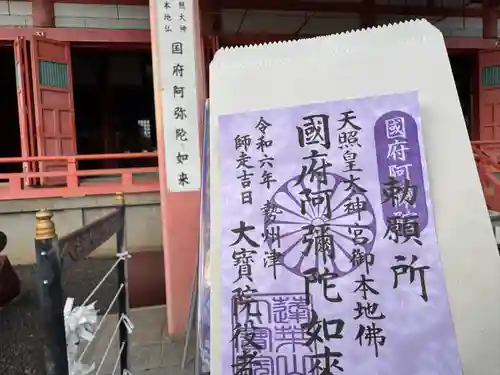 照大神
本地仏
国府阿弥陀如来
国府阿
勅願所
天照皇大神宮御本地佛
國府阿彌陀如来
令和六年 勢州津
師走吉日 大寳院役者